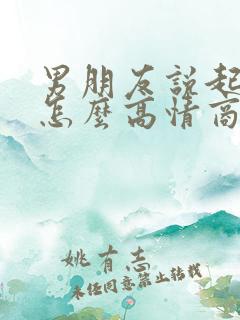 男朋友说起
怎麽高情商
姚有志
未经同意禁止转载